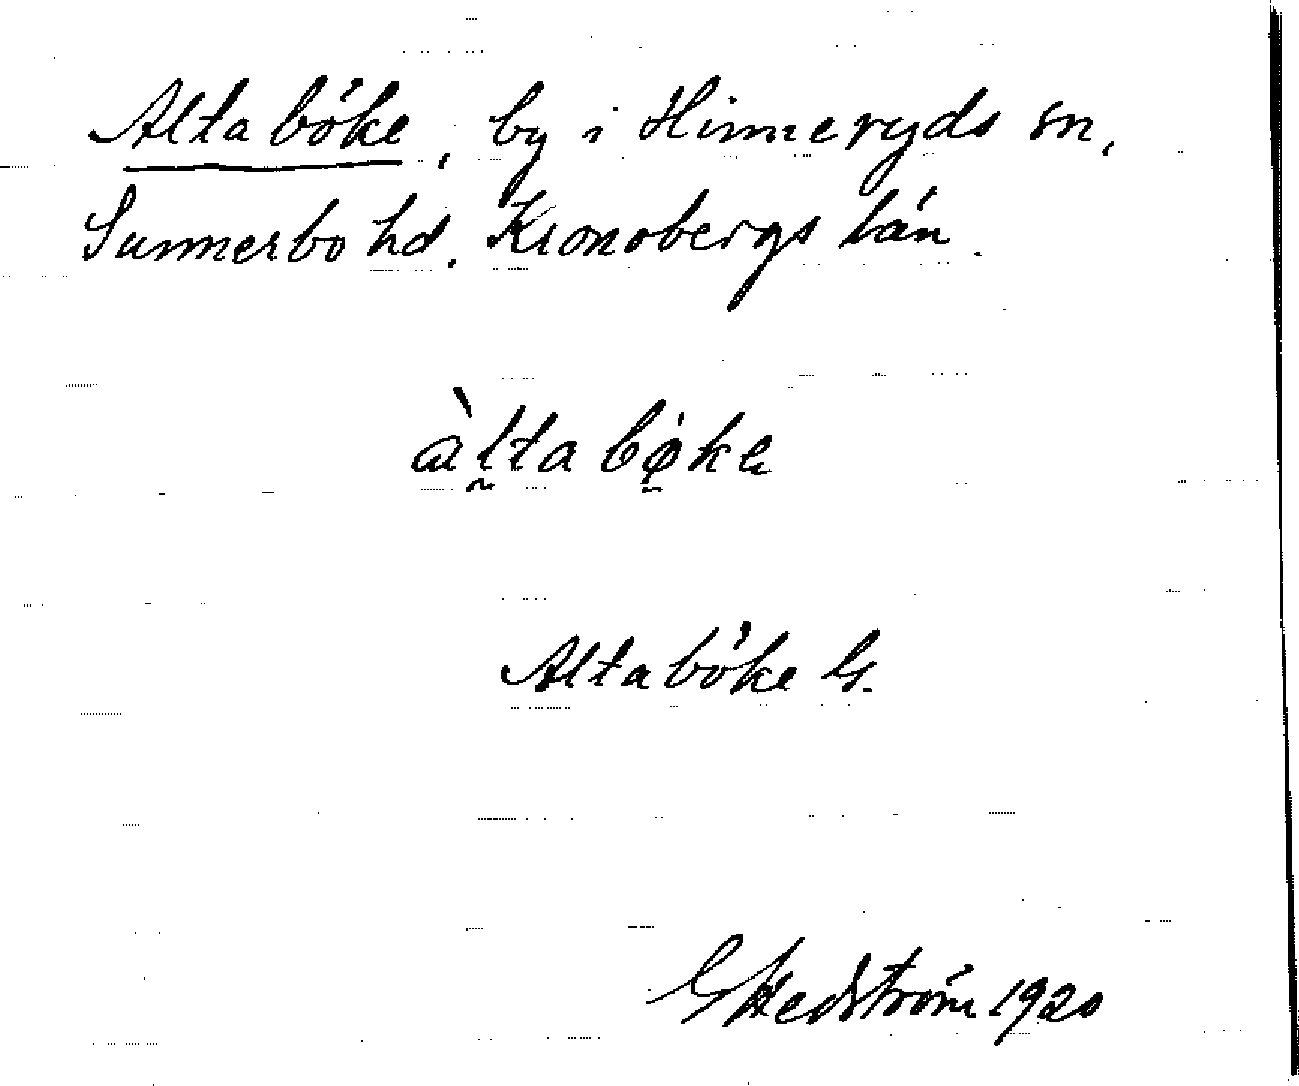 Altaböke, by i Hinneryds sn,
Sunnerbo hd. Kronobergs län.
àlta bø̀ke
Altaböke G.
G Hedström 1920